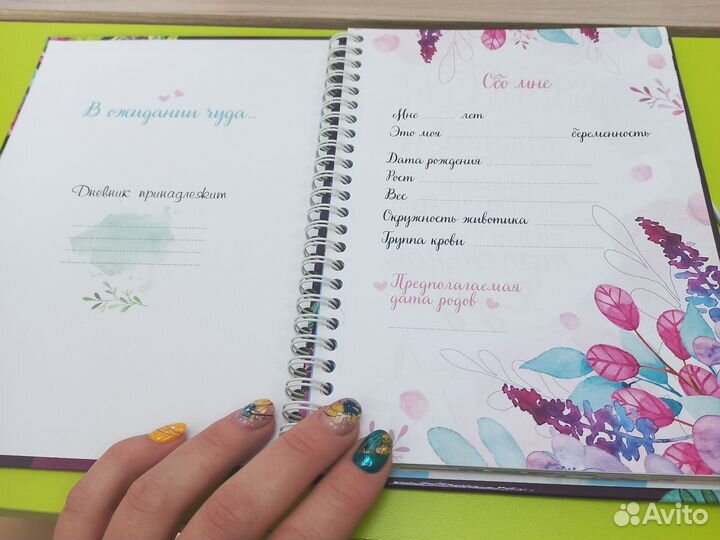 В ожидании чуда...
Дневник принадлежит
Обо мне
Мне лет
Это моя беременность
Дата рождения
Рост
Вес
Окружность животика
Группа крови
Предполагаемая
дата родов
Avito